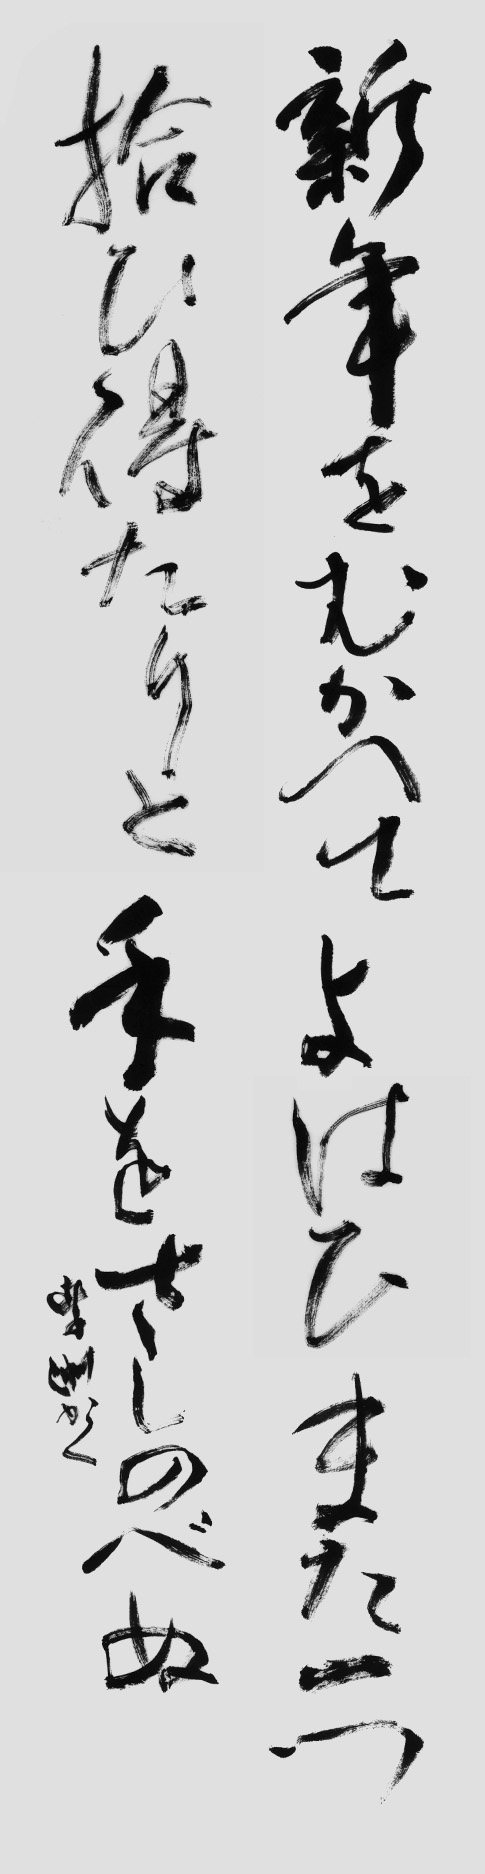 新年をむかへせよはひまた一つ
拾ひ得たりと手をさしのべぬ